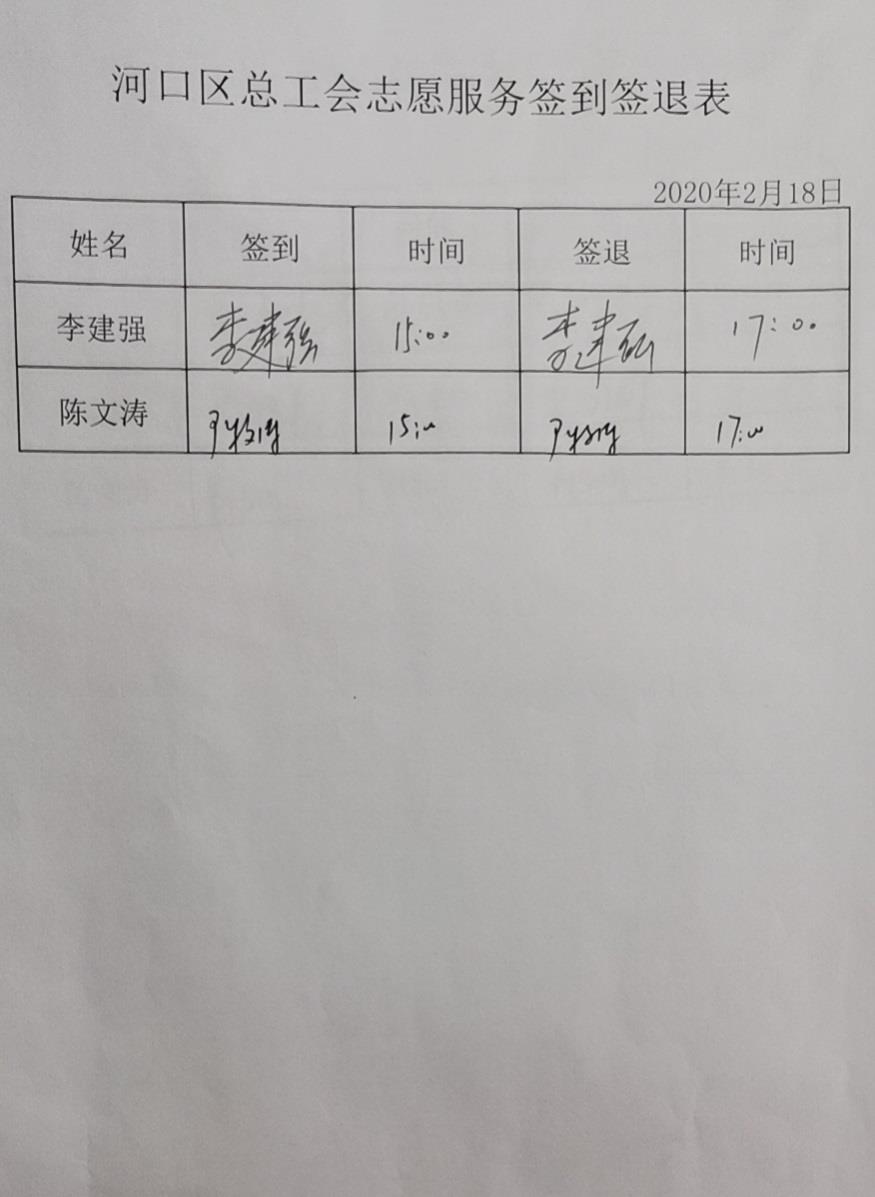 河口区总工会志愿服务签到签退表
2020年2月18日
姓名 签到 时间 签退 时间
李建强 李建强 15:00 李建强 17:00
陈文涛 陈文涛 15:00 陈文涛 17:00